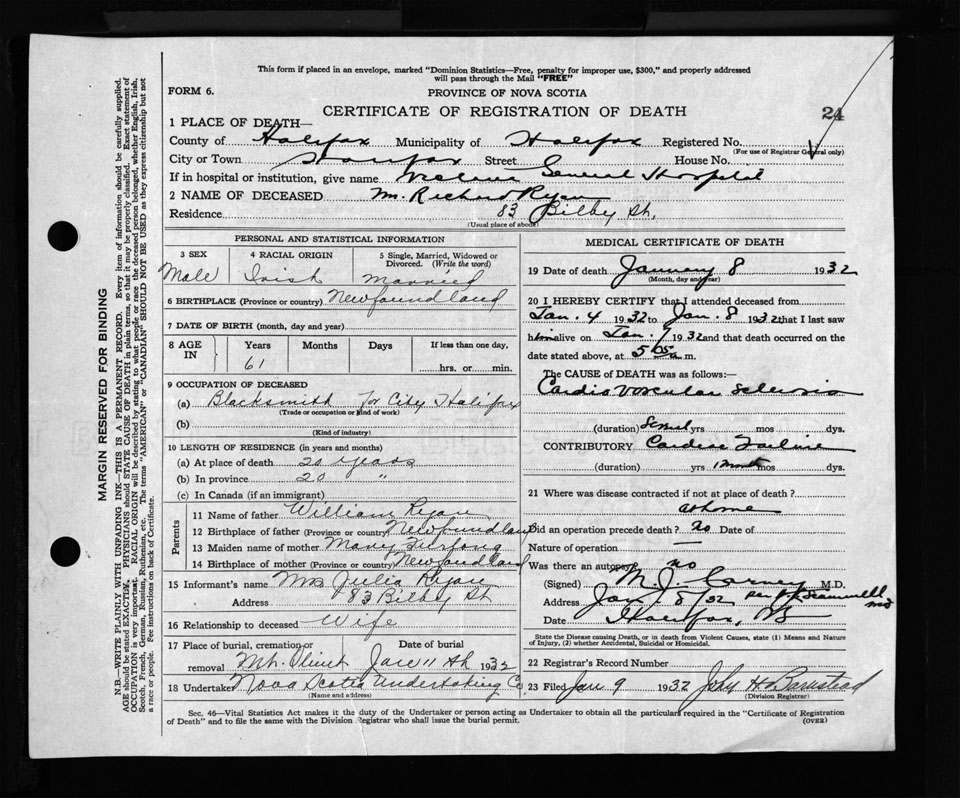 This form if placed in an envelope, marked "Dominion Statistics—Free, penalty for improper use, $300," and properly addressed
will pass through the Mail "FREE"
FORM 6.
PROVINCE OF NOVA SCOTIA
CERTIFICATE OF REGISTRATION OF DEATH
24
1 PLACE OF DEATH—
County of Halifax Municipality of Halifax Registered No.
(For use of Registrar General only)
City or Town Halifax Street House No.
If in hospital or institution, give name Victoria General Hospital
2 NAME OF DECEASED Mr. Richard Ryan
Residence 83 Bilby St.
(Usual place of abode)
PERSONAL AND STATISTICAL INFORMATION
3 SEX 4 RACIAL ORIGIN 5 Single, Married, Widowed or
Divorced. (Write the word)
Male Irish Married
6 BIRTHPLACE (Province or country) Newfoundland
7 DATE OF BIRTH (month, day and year)
8 AGE IN Years Months Days If less than one day,
61 hrs. or min.
9 OCCUPATION OF DECEASED
(a) Blacksmith for City Halifax
(Trade or occupation or kind of work)
(b)
(Kind of industry)
10 LENGTH OF RESIDENCE (in years and months)
(a) At place of death 20 years
(b) In province 20 "
(c) In Canada (if an immigrant)
Parents
11 Name of father William Ryan
12 Birthplace of father (Province or country) Newfoundland
13 Maiden name of mother Mary Furlong
14 Birthplace of mother (Province or country) Newfoundland
15 Informant's name Mrs Julia Ryan
Address 83 Bilby St
16 Relationship to deceased Wife
17 Place of burial, cremation or Date of burial
removal Mt. Olivet Jan 11th 1932
18 Undertaker Nova Scotia Undertaking Co
(Name and address)
MEDICAL CERTIFICATE OF DEATH
19 Date of death January 8 1932
(Month, day and year)
20 I HEREBY CERTIFY that I attended deceased from
Jan. 4 1932 to Jan. 8 1932 that I last saw
him alive on Jan. 7 1932 and that death occurred on the
date stated above, at 5 05 a.m.
The CAUSE OF DEATH was as follows:—
Cardio Vascular Sclerosis
(duration) Several yrs mos dys.
CONTRIBUTORY Cardiac Failure
(duration) yrs 1 month mos dys.
21 Where was disease contracted if not at place of death?
at home
Did an operation precede death? no Date of
Nature of operation —
Was there an autopsy? no
(Signed) M. J. Carney M.D.
Address Jan 8/32 per
Date Halifax, NS
State the Disease causing Death, or in death from Violent Causes, state (1) Means and Nature
of Injury, (2) whether Accidental, Suicidal or Homicidal.
22 Registrar's Record Number
23 Filed Jan 9 1932 John H Barnstead
(Division Registrar)
Sec. 46—Vital Statistics Act makes it the duty of the Undertaker or person acting as Undertaker to obtain all the particulars required in the "Certificate of Registration
of Death" and to file the same with the Division Registrar who shall issue the burial permit.
(OVER)
MARGIN RESERVED FOR BINDING
N.B.—WRITE PLAINLY WITH UNFADING INK—THIS IS A PERMANENT RECORD. Every item of information should be carefully supplied.
AGE should be stated EXACTLY. PHYSICIANS should STATE CAUSE OF DEATH in plain terms, so that it may be properly classified. Exact statement of
OCCUPATION is very important. RACIAL ORIGIN will be described by stating to what people or race the deceased person belonged, whether English, Irish,
Scotch, French, German, Russian, Ruthenian, etc. The terms "AMERICAN" or "CANADIAN" SHOULD NOT BE USED as they express citizenship but not
a race or people. See instructions on back of Certificate.